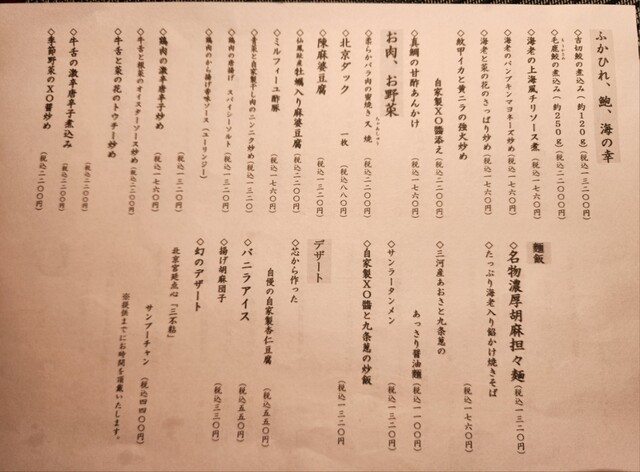 ふかひれ、鮑、海の幸
◇吉切鮫の煮込み（約120g）（税込一三二〇〇円）
◇毛鹿鮫の煮込み（約250g）（税込二二〇〇〇円）
◇海老の上海風チリソース煮（税込一七六〇円）
◇海老のパンプキンマヨネーズ炒め（税込一七六〇円）
◇海老と菜の花のさっぱり炒め（税込一七六〇円）
◇紋甲イカと黄ニラの強火炒め
自家製XO醬添え（税込二二〇〇円）
◇真鯛の甘酢あんかけ（税込一七六〇円）
お肉、お野菜
◇柔らかバラ肉の蜜焼き叉焼（税込二二〇〇円）
◇北京ダック 一枚（税込八八〇円）
◇陳麻婆豆腐（税込一三二〇円）
◇仙鳳趾産牡蠣入り麻婆豆腐（税込二二〇〇円）
◇ミルフィーユ酢豚（税込一七六〇円）
◇青菜と自家製干し肉のニンニク炒め（税込一三二〇円）
◇鶏肉の唐揚げ スパイシーソルト（税込一三二〇円）
◇鶏肉のから揚げ香味ソース（ユーリンジー）
（税込一三二〇円）
◇鶏肉の激辛唐辛子炒め（税込一七六〇円）
◇牛舌と根菜のオイスターソース炒め（税込二二〇〇円）
◇牛舌と菜の花のトウチー炒め
（税込二二〇〇円）
◇牛舌の激辛唐辛子煮込み
（税込二二〇〇円）
◇季節野菜のXO醬炒め（税込二二〇〇円）
麺飯
◇名物濃厚胡麻担々麺（税込一三二〇円）
◇たっぷり海老入り餡かけ焼きそば
（税込一七六〇円）
◇三河産あおさと九条葱の
あっさり醤油麺（税込一一〇〇円）
◇サンラータンメン（税込一三二〇円）
◇自家製XO醬と九条葱の炒飯
（税込一三二〇円
デザート
◇芯から作った
自慢の自家製杏仁豆腐（税込五五〇円）
◇バニラアイス（税込五五〇円）
◇揚げ胡麻団子（税込三三〇円）
◇幻のデザート
北京宮廷点心「三不粘」
サンプーチャン（税込四四〇〇円）
※提供までにお時間を頂戴いたします。